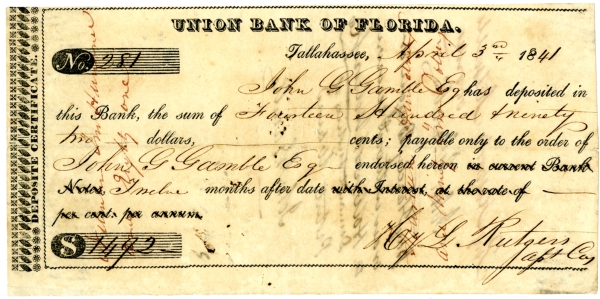 UNION BANK OF FLORIDA.
No. 281
Tallahassee, April 3rd 1841
John G Gamble Esq has deposited in
this Bank, the sum of Fourteen Hundred & ninety
two dollars, cents; payable only to the order of
John G Gamble Esq endorsed hereon in current Bank
Notes, Twelve months after date with Interest, at the rate of
per cent. per annum.
$ 1492
Hy L. Rutgers
DEPOSITE CERTIFICATE.